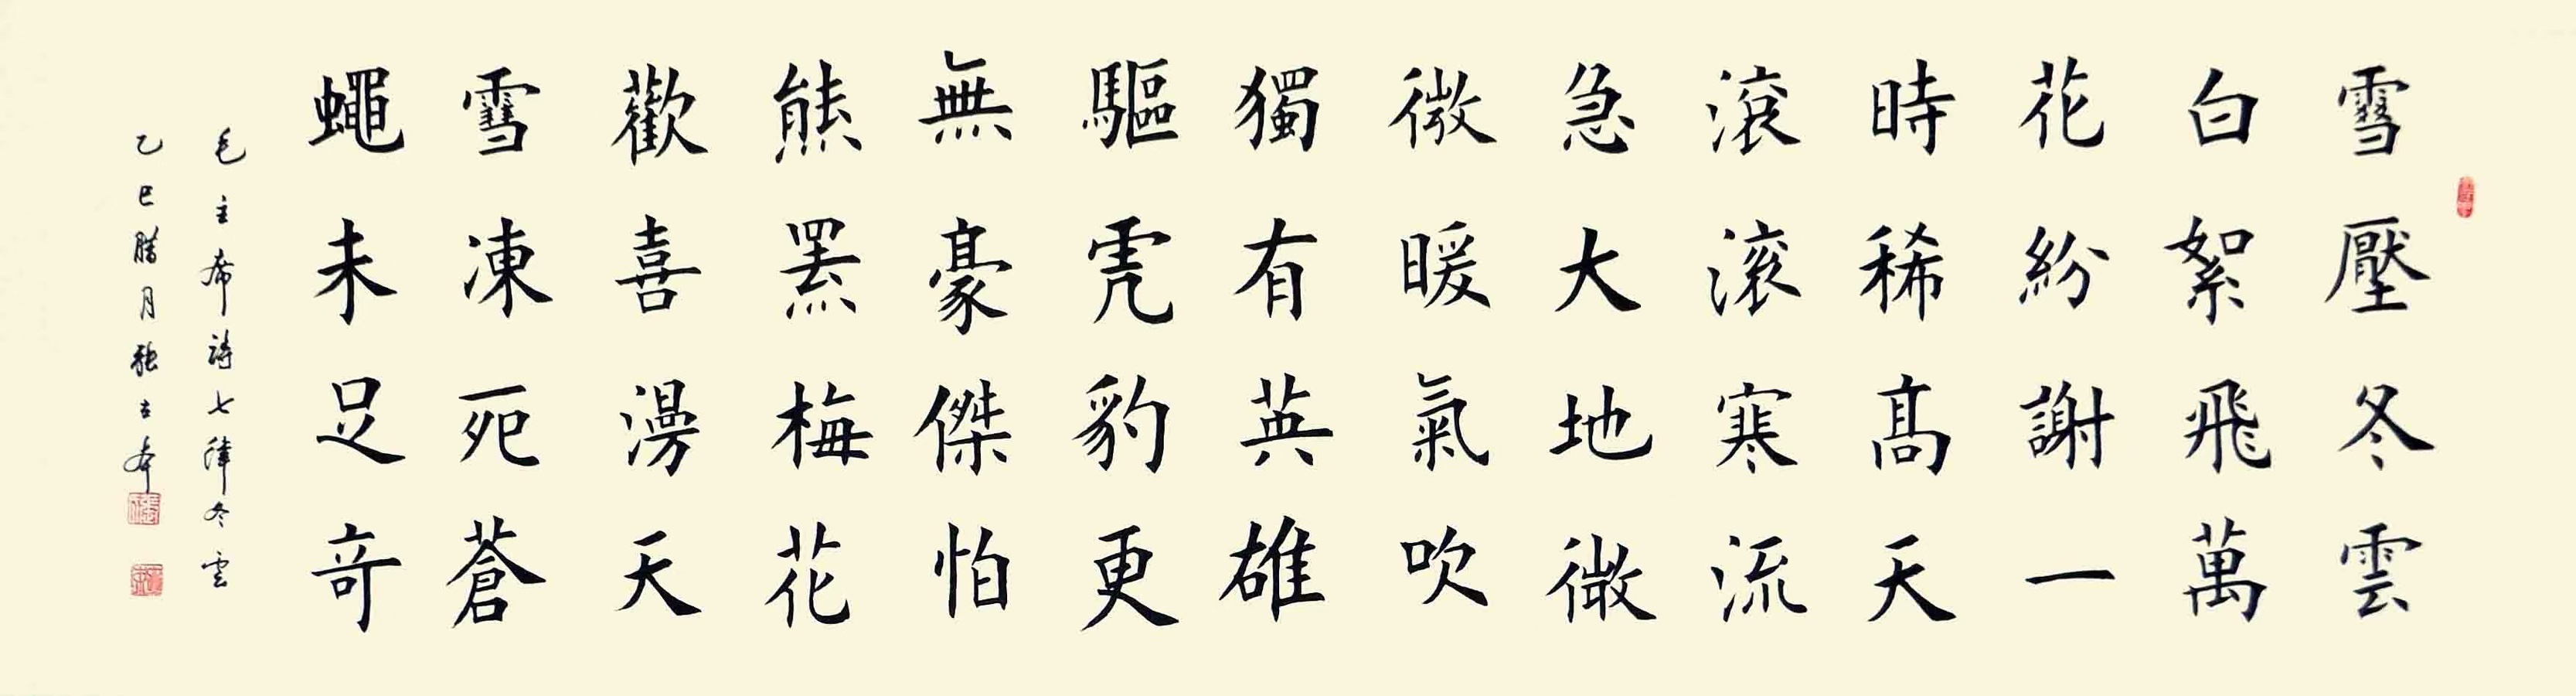 雪壓冬雲
白絮飛萬
花紛謝一
時稀髙天
滾滾寒流
急大地微
微暖氣吹
獨有英雄
驅虎豹更
無豪傑怕
熊羆梅花
歡喜漫天
雪凍死蒼
蠅未足奇
毛主席詩七律冬雲
乙巳腊月張